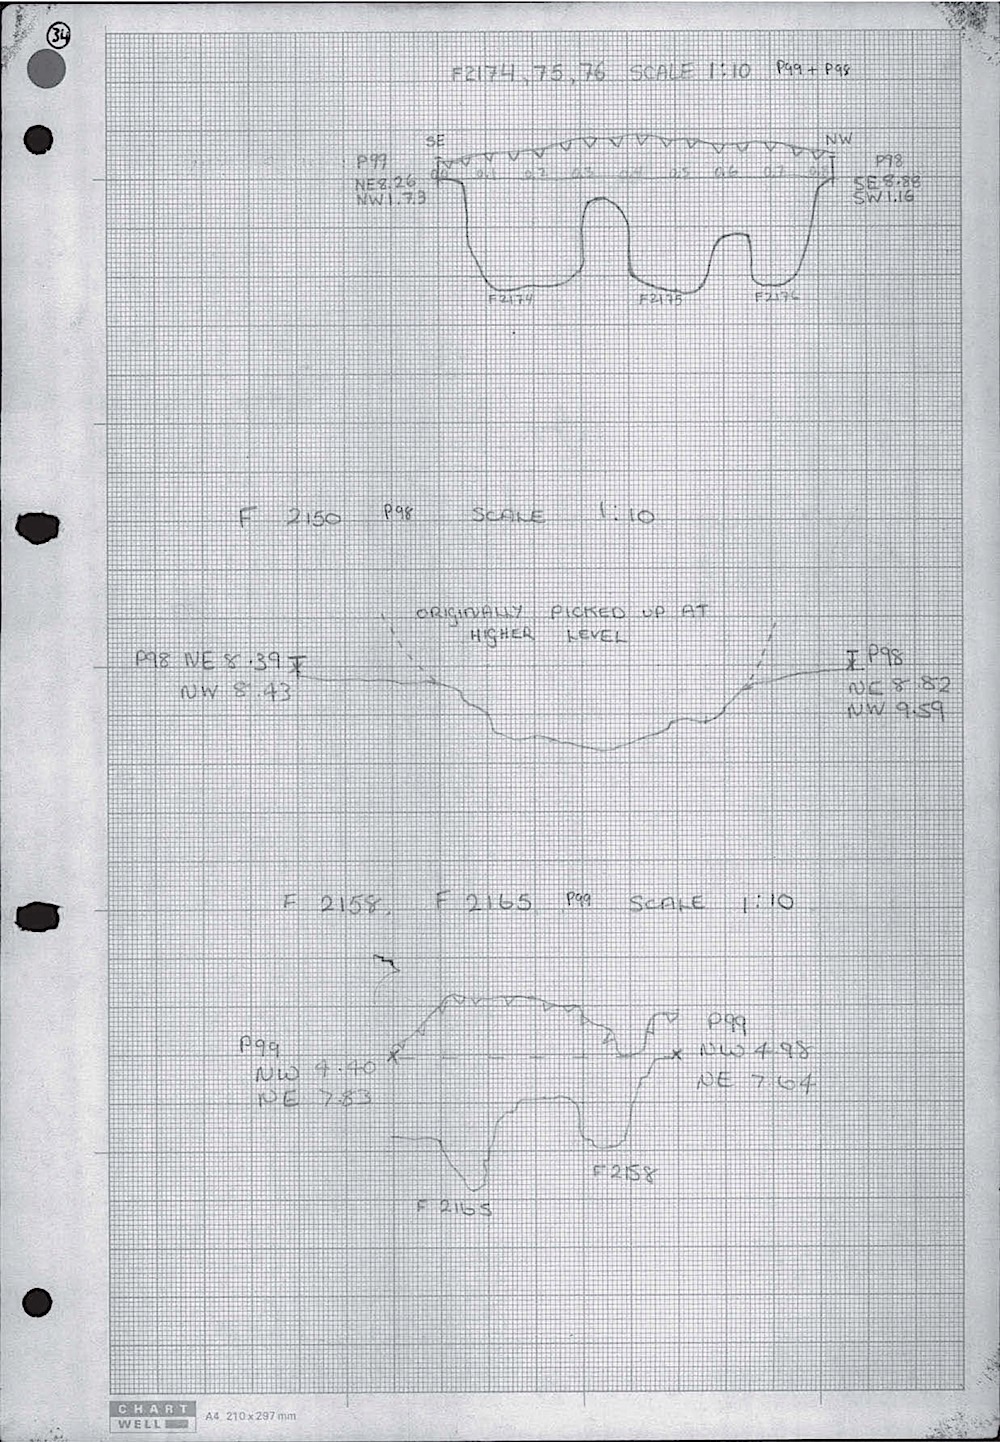 34
F2174, 75, 76 SCALE 1:10 P99 + P98
SE
NW
P99
NE 8.26
NW 1.73
0.1 0.2 0.3 0.4 0.5 0.6 0.7
P98
SE 8.88
SW 1.16
F2174
F2175
F2176
F 2150 P98 SCALE 1:10
ORIGINALLY PICKED UP AT
HIGHER LEVEL
P98 NE 8.39
NW 8.43
P98
NE 8.82
NW 9.59
F 2158, F 2165 P99 SCALE 1:10
P99
NW 4.40
NE 7.83
P99
NW 4.98
NE 7.64
F 2158
F 2165
CHART
WELL
A4 210 x 297 mm